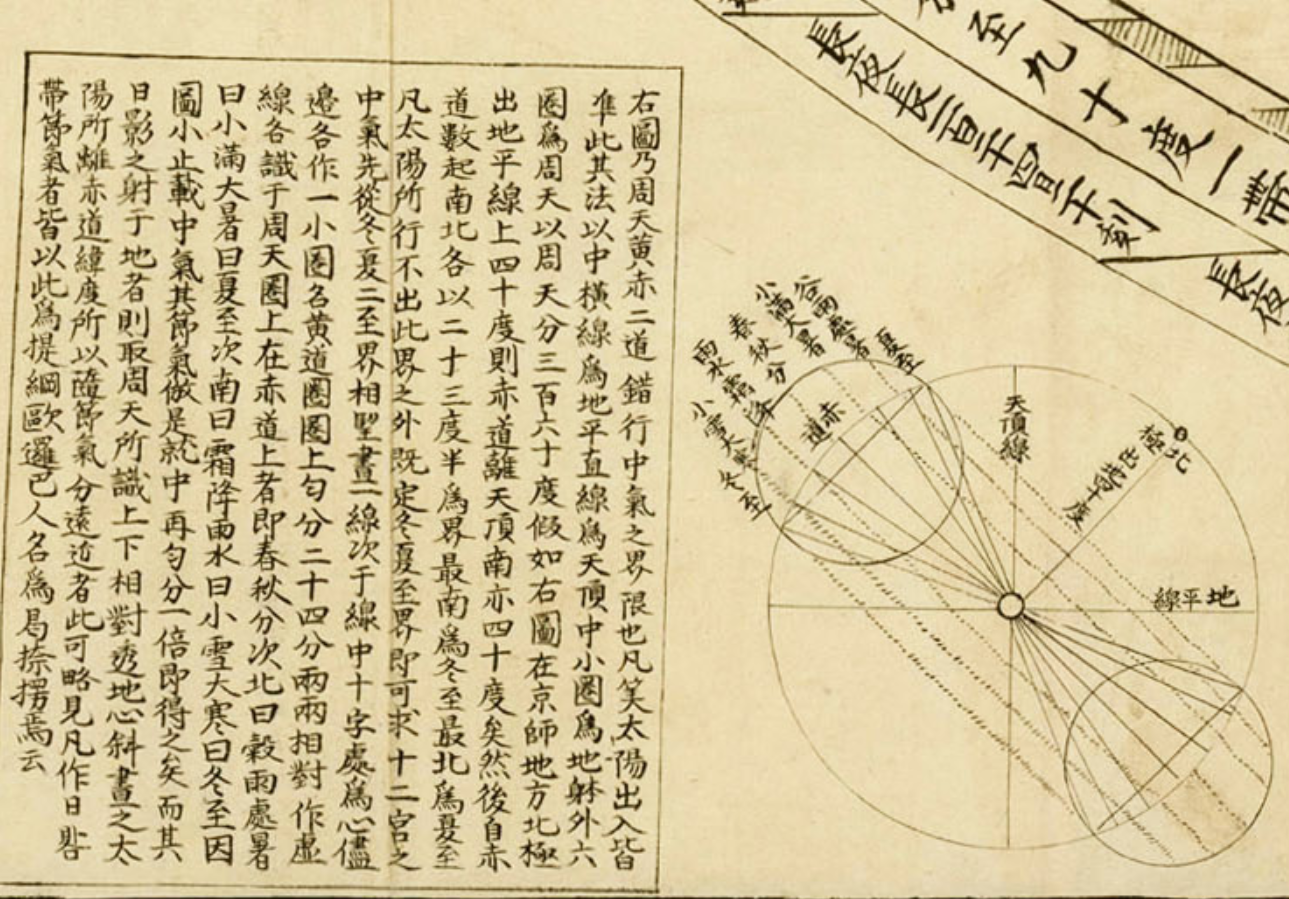 至九十度一帶
長夜長一百千四百二十刻
長夜
右圖乃周天黄赤二道錯行中氣之界限也凡筭太陽出入皆
准此其法以中横線爲地平直線爲天頂中小圈爲地躰外六
圈爲周天以周天分三百六十度假如右圖在京師地方北極
出地平線上四十度則赤道離天頂南亦四十度矣然後自赤
道數起南北各以二十三度半爲界最南爲冬至最北爲夏至
凡太陽所行不出此界之外既定冬夏至界即可求十二宫之
中氣先從冬夏二至界相望畫一線次于線中十字處爲心儘
邉各作一小圈名黄道圈圈上匀分二十四分兩兩相對作虛
線各識于周天圈上在赤道上者即春秋分次北曰穀雨處暑
曰小滿大暑曰夏至次南曰霜降雨水曰小雪大寒曰冬至因
圖小止載中氣其節氣倣是就中再匀分一倍即得之矣而其
日影之射于地者則取周天所識上下相對透地心斜畫之太
陽所離赤道緯度所以隨節氣分遠近者此可略見凡作日晷
帶節氣者皆以此爲提綱歐邏巴人名爲曷捺楞焉云
夏至
谷雨處暑
小滿大暑
春秋分
雨水霜降
小雪大寒
冬至
赤道
天頂線
北極
出地四十度
地平線